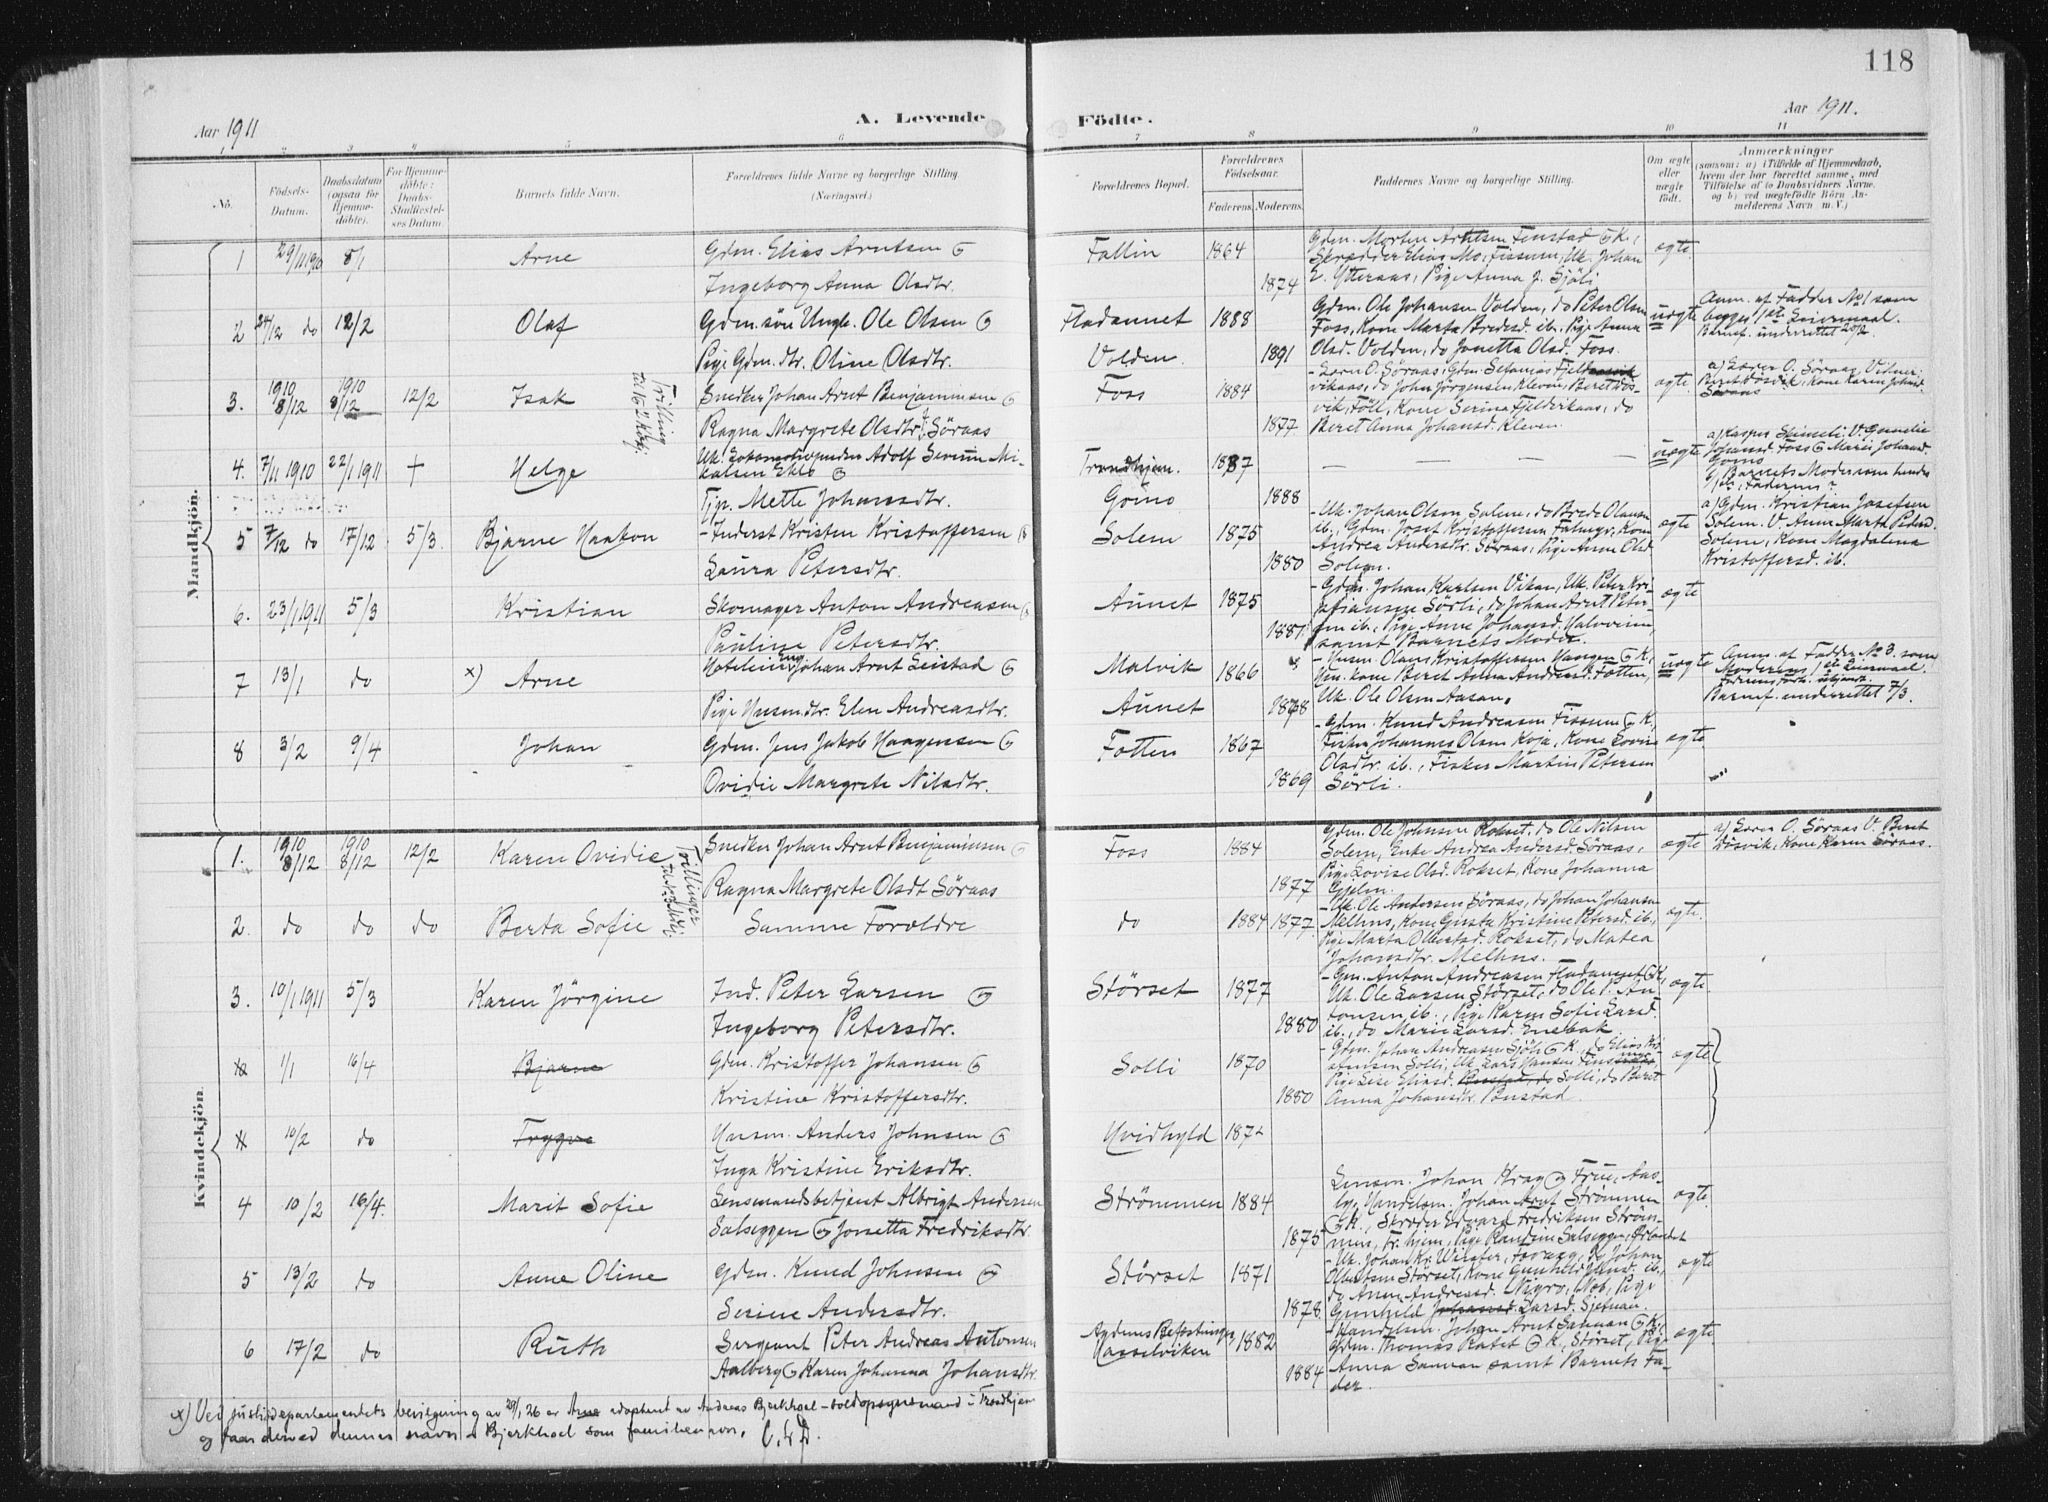 118
Aar 1911
A. Levende
Födte.
Aar 1911.
1 2 3 4 5 6 7 8 9 10 11
No.
Födsels-Datum.
Daabsdatum (ogsaa for Hjemmedöbte).
For Hjemmedöbte: Daabs-Stadfæstelses Datum.
Barnets fulde Navn.
Forældrenes fulde Navne og borgerlige Stilling. (Næringsvei.)
Forældrenes Bopæl.
Forældrenes Födselsaar.
Faderens. Moderens.
Faddernes Navne og borgerlige Stilling.
Om ægte eller uægte födt.
Anmærkninger
(saasom: a) i Tilfælde af Hjemmedaab, hvem der har forrettet samme, med Tilföielse af to Daabsvidners Navne, og b) ved uægtefödte Börn Anmelderens Navn m. V.)
Mandkjön.
1 29/11 1910 8/1 Arne Gdm. Elias Arntsen
Ingeborg Anna Olsdtr.
Fallin 1864 1874
Gdm. Morten Arntsen Finstad K.,
Skrædder Elias Mo, Fissum, Uk. Johan
E. Ytteraas, Pige Anna J. Sjöli
ægte
2 24/12 do 12/2 Olaf Gdm. sön Ungk. Ole Olsen
Pige Gdm. dtr. Oline Olsdtr.
Fladaunet 1888
Volden. 1891
Gdm. Ole Johansen Volden, do Peter Olsen
Foss, Kone Marta Bredesd. ib. Pige Anna
Olsd. Volden, do Jonetta Olsd. Foss.
uægte
Anm. af Fadder No 1 som
begges 1ste Leiermaal.
Barnef. underrettet 20/2
3. 1910 8/12 1910 8/12 12/2 Isak
Trilling
Snedker Johan Arnt Benjaminsen
Ragna Margrete Olsdtr. Söraas
Foss 1884 1877
vikaas, do John Jörgensen Kleven, Beret
vik, Föll, Kone Serina Fjeldvikaas, do
Beret Anna Johansd. Kleven.
ægte.
4. 7/11 1910 22/1 1911 + Helge
Adolf Severin Mi-
kalsen
Tjp. Mette Johansdtr.
Trondhjem. 1887
Grino 1888
— — — —
uægte
Barnets Moder som hendes
1ste, Faderens?
5 7/12 do 17/12 5/3. Bjarne Haakon
Inderst Kristen Kristoffersen
Laura Petersdtr.
Solem 1875 1880
Uk. Johan Olsen Solem, do Brede Olausen
ib., Gdm. Josef Kristoffersen Kone
Andrea Andersdtr. Söraas, Pige Anne Olsd.
Solem.
ægte
a) Gdm. Kristian Josefsen
Solem. V. Ann Marth. Pedersd.
Solem, Kone Magdalena
Kristoffersd. ib.
6. 23/1 1911 5/3 Kristian
Skomager Anton Andreasen
Pauline Petersdtr.
Aunet 1875 1881
Gdm. Johan Karlsen Vikan, Uk. Peter Kri-
stiansen Sörli, do Johan Arnt Peter-
sen ib., Pige Anne Johansd. Halvorsen,
samt Barnets Moder.
ægte
7 13/1 do x) Arne
Johan Arnt Leistad
Pige Husm.dtr. Elen Andreasdtr.
Malvik 1866
Aunet 1878
Husm. Olaus Kristoffersen Haugen K.,
Hm. kone Beret Anna Andreasd. Fotten,
Uk. Ole Olsen Aasan,
uægte
Anm. af Fadder No 3. som
Moderens 1ste Leiermaal.
Barnef. underrettet 7/3.
8 3/2 9/4 Johan
Gdm. Jens Jakob Haagensen
Ovidie Margrete Nilsdtr.
Fotten 1867 1869
Gdm. Knud Andreasen Fissum K,
Fisker Johannes Olsen Koja, Kone Lovise
Olsdtr. ib., Fisker Martin Petersen
Sörli.
ægte
Kvindekjön.
1. 1910 8/12 1910 8/12 12/2 Karen Ovidie
Trillinger
Snedker Johan Arnt Benjaminsen
Ragna Margrete Olsdt Söraas
Foss 1884 1877
Gdm. Ole Johnsen Rokset, do Ole Nilsen
Solem, Enke Andrea Andersd. Söraas,
Pige Lovise Olsd. Rokset, Kone Johanna
Gjelm.
ægte
a) Soren O. Söraas V. Beret
Dösvik, Kone Karen Söraas.
2. do do do Berta Sofie Samme Forældre
do 1884 1877.
Uk. Ole Andersen Söraas, do Johan Johansen
Melhus, Kone Gusta Kristine Petersd. ib,
Pige Marta Olbertsd. Rokset, do Matea
Johansdtr. Melhus.
ægte.
3. 10/1 1911 5/3 Karen Jörgine
Ind. Peter Larsen
Ingeborg Petersdtr.
Störset 1877 1880
Gm. Anton Andreasen Fladaunet K,
Uk. Ole Larsen Störset, do Ole P. An-
tonsen ib., Pige Karen Sofie Larsd.
ib., do Marie Larsd. Enebak.
ægte
1/1 16/4 Bjarne
Gdm. Kristoffer Johansen
Kristine Kristoffersdtr.
Solli 1870 1880
Gdm. Johan Andreasen Sjöli K. do Elias Kri-
stensen Solli, Uk Lars Hansen
Pige Lise Eliasd. Solli, do Beret
Anna Johansdtr. Bustad.
ægte
10/2 do Trygve
Husm. Anders Johnsen
Inga Kristine Eriksdtr.
Hvidhyld 1872
4 10/2 16/4. Marit Sofie
Lensmandsbetjent Albrigt Andersen
Salseggen Jonetta Fredriksdtr.
Strömmen 1884 1875
Lensm. Johan Krag Frue, Aas-
ly, Handelsm. Johan Arnt Strömmen
K., Skræder Edvard Fredriksen Ström-
men, Tr.hjem, Pige Randine Salseggen, Örlandet
ægte
5 13/2 do Anne Oline
Gdm. Knud Johnsen
Serine Andersdtr.
Störset 1871 1878.
Uk. Johan Kr. Winter, do Johan
Olbertsen Störset, Kone Gunhild Johnsd. ib.,
do Anne Andreasd. Pige
Gunhild Larsd. Sjetnan.
ægte
6 17/2 do Ruth
Sergeant Peter Andreas Antonsen
Aalberg Karen Johanna Johansdtr.
Agdenes Befæstninger
Hasselviken 1882 1884
Handelsm. Johan Arnt Sanvan K.
Gdm. Thomas Ratet K., Störset, Pige
Anna Sanvan samt Barnets Fa-
der.
ægte
x) Ved justisdepartementets bevilgning av 29/1 26 er Arne adoptert av Andreas Bjerkhoel – toldopsynsmand i Trondhjem
og faar derved dennes navn – Bjerkhoel som familienavn.